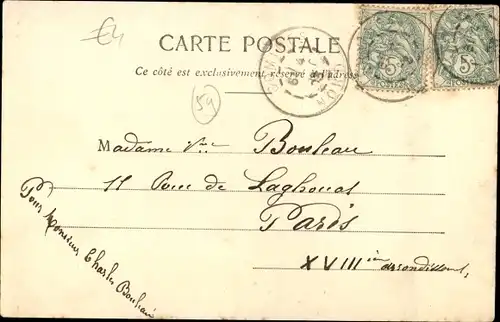 €4
CARTE POSTALE
Ce côté est exclusivement réservé à l'adresse
59
5c
5c
Madame Vve Bouleau
11 Rue de Laghouat
Paris
XVIII ième arrondissement
Pour Monsieur Charles Bouleau